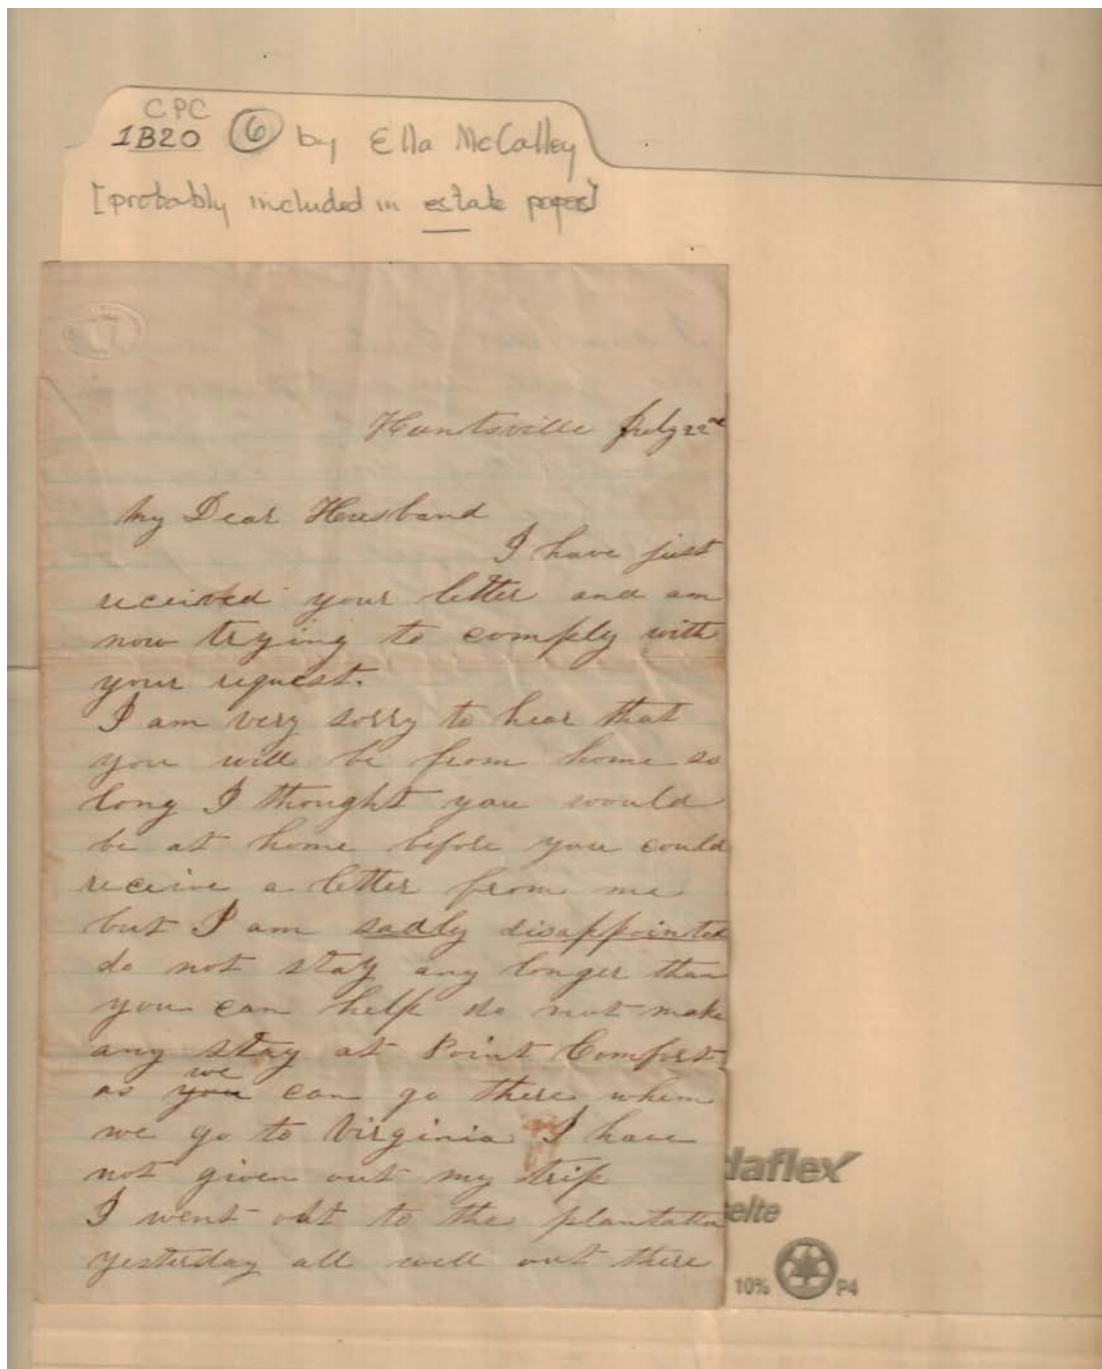 CPC
1B20 6 by Ella McCalley
[probably included in estate papers]
Huntsville July 22nd
My Dear Husband
I have just
received your letter and am
now trying to comply with
your request.
I am very sorry to hear that
you will be from home so
long I thought you would
be at home before you could
receive a letter from me
but I am sadly disappointed
do not stay any longer than
you can help do not make
any stay at Point Comfort
we
as you can go there when
we go to Virginia I have
not given out my trip
I went out to the plantation
yesterday all well out there
daflex
elte
10% P4